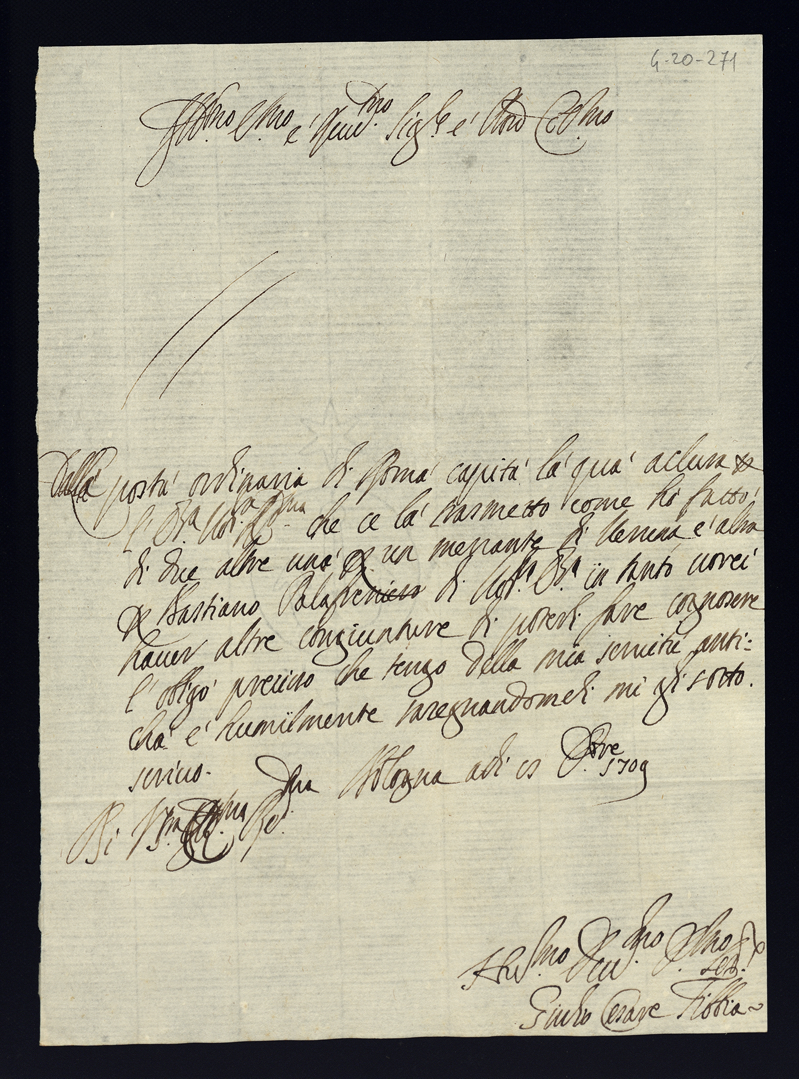 G-20-271
Ill.mo e Reue.mo Sig.re e Pron Col.mo
Dalla posta ordinaria di Roma capita la qua aclusa p
l' che ce la trasmetto come ho fatto
di due altre una p un mercante di Verona e altra
p Bastiano Palafreniero di in tanto uorei
hauer altre congiunture di poterli fare cognosere
l'obligo preciso che tengo della mia seruitù anti=
cha e humilmente rasegnandomeli mi gli sotto
scriuo.
Bologna adi
1709
Di V.
Hu.mo Deu.mo Ser.
Giulio Cesare Fibbia